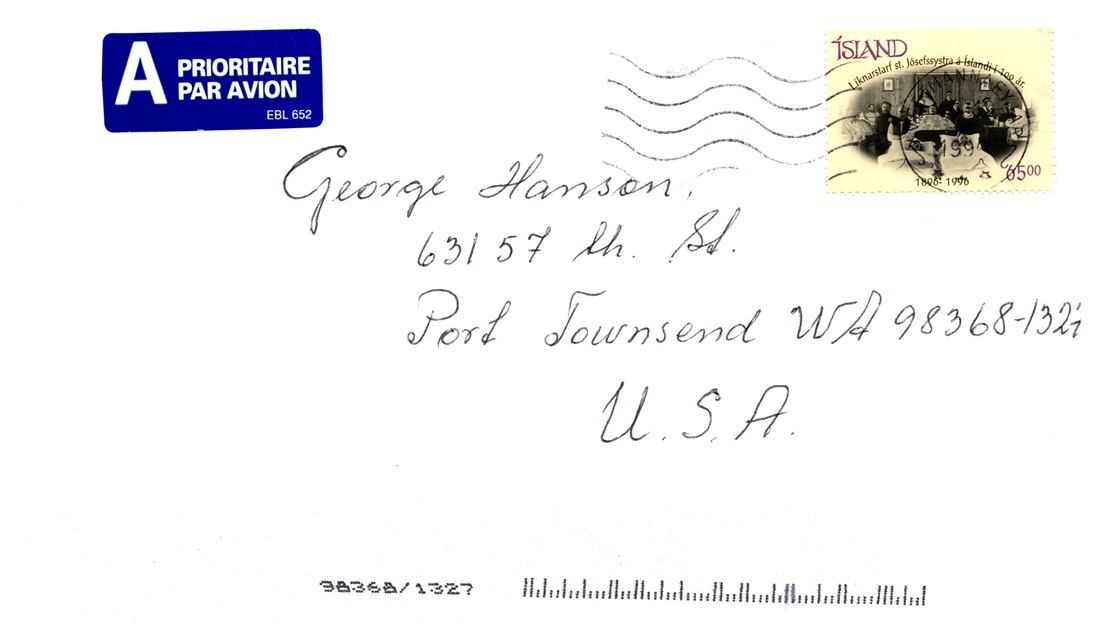 A PRIORITAIRE
PAR AVION
EBL 652
ÍSLAND
Líknarstarf st. Jósefssystra á Íslandi í 100 ár.
1896-1996
6500
George Hanson,
631 57 th. St.
Port Townsend WA 98368-1327
U. S. A.
98368/1327